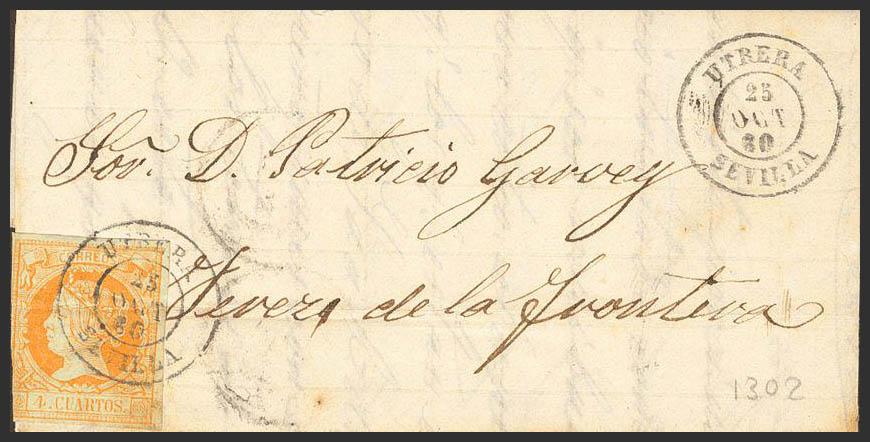 UTRERA
25
OCT
60
SEVILLA
Sor. D. Patricio Garvey
Jerez de la Frontera
UTRERA
25
OCT
60
SEVILLA
CORREOS
4 CUARTOS.
1302